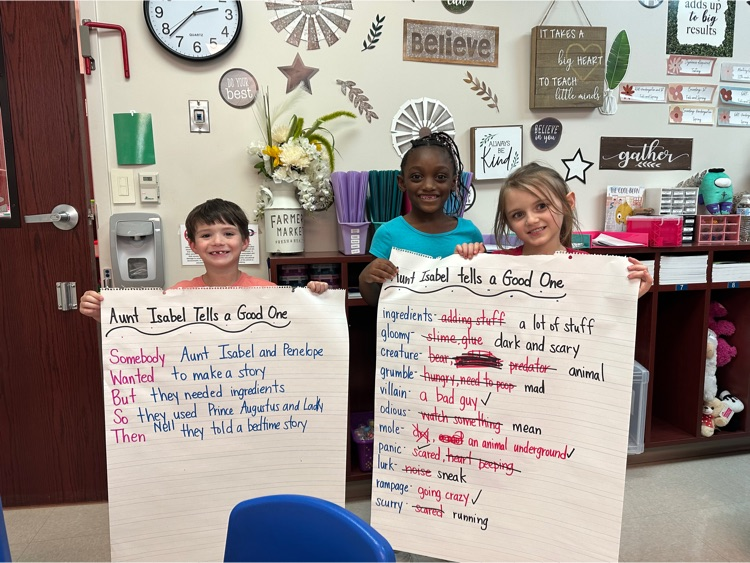 12
1
2
3
4
5
6
7
8
9
10
11
DO YOUR
best
Believe
IT TAKES A
big HEART
TO TEACH
little MINDS
adds up
to big
results
FARMER
MARKET
ALWAYS
BE
Kind
BELIEVE
in you
gather
7
8
Aunt Isabel Tells a Good One
Somebody Aunt Isabel and Penelope
Wanted to make a story
But they needed ingredients
So they used Prince Augustus and Lady
Nell
Then they told a bedtime story
Aunt Isabel tells a Good One
ingredients- adding stuff a lot of stuff
gloomy- slime, glue dark and scary
creature- bear, predator- animal
grumble- hungry, need to poop mad
villain- a bad guy ✓
odious- watch something mean
mole- an animal underground ✓
panic- scared, heart beeping
lurk- noise sneak
rampage- going crazy ✓
scurry- scared running